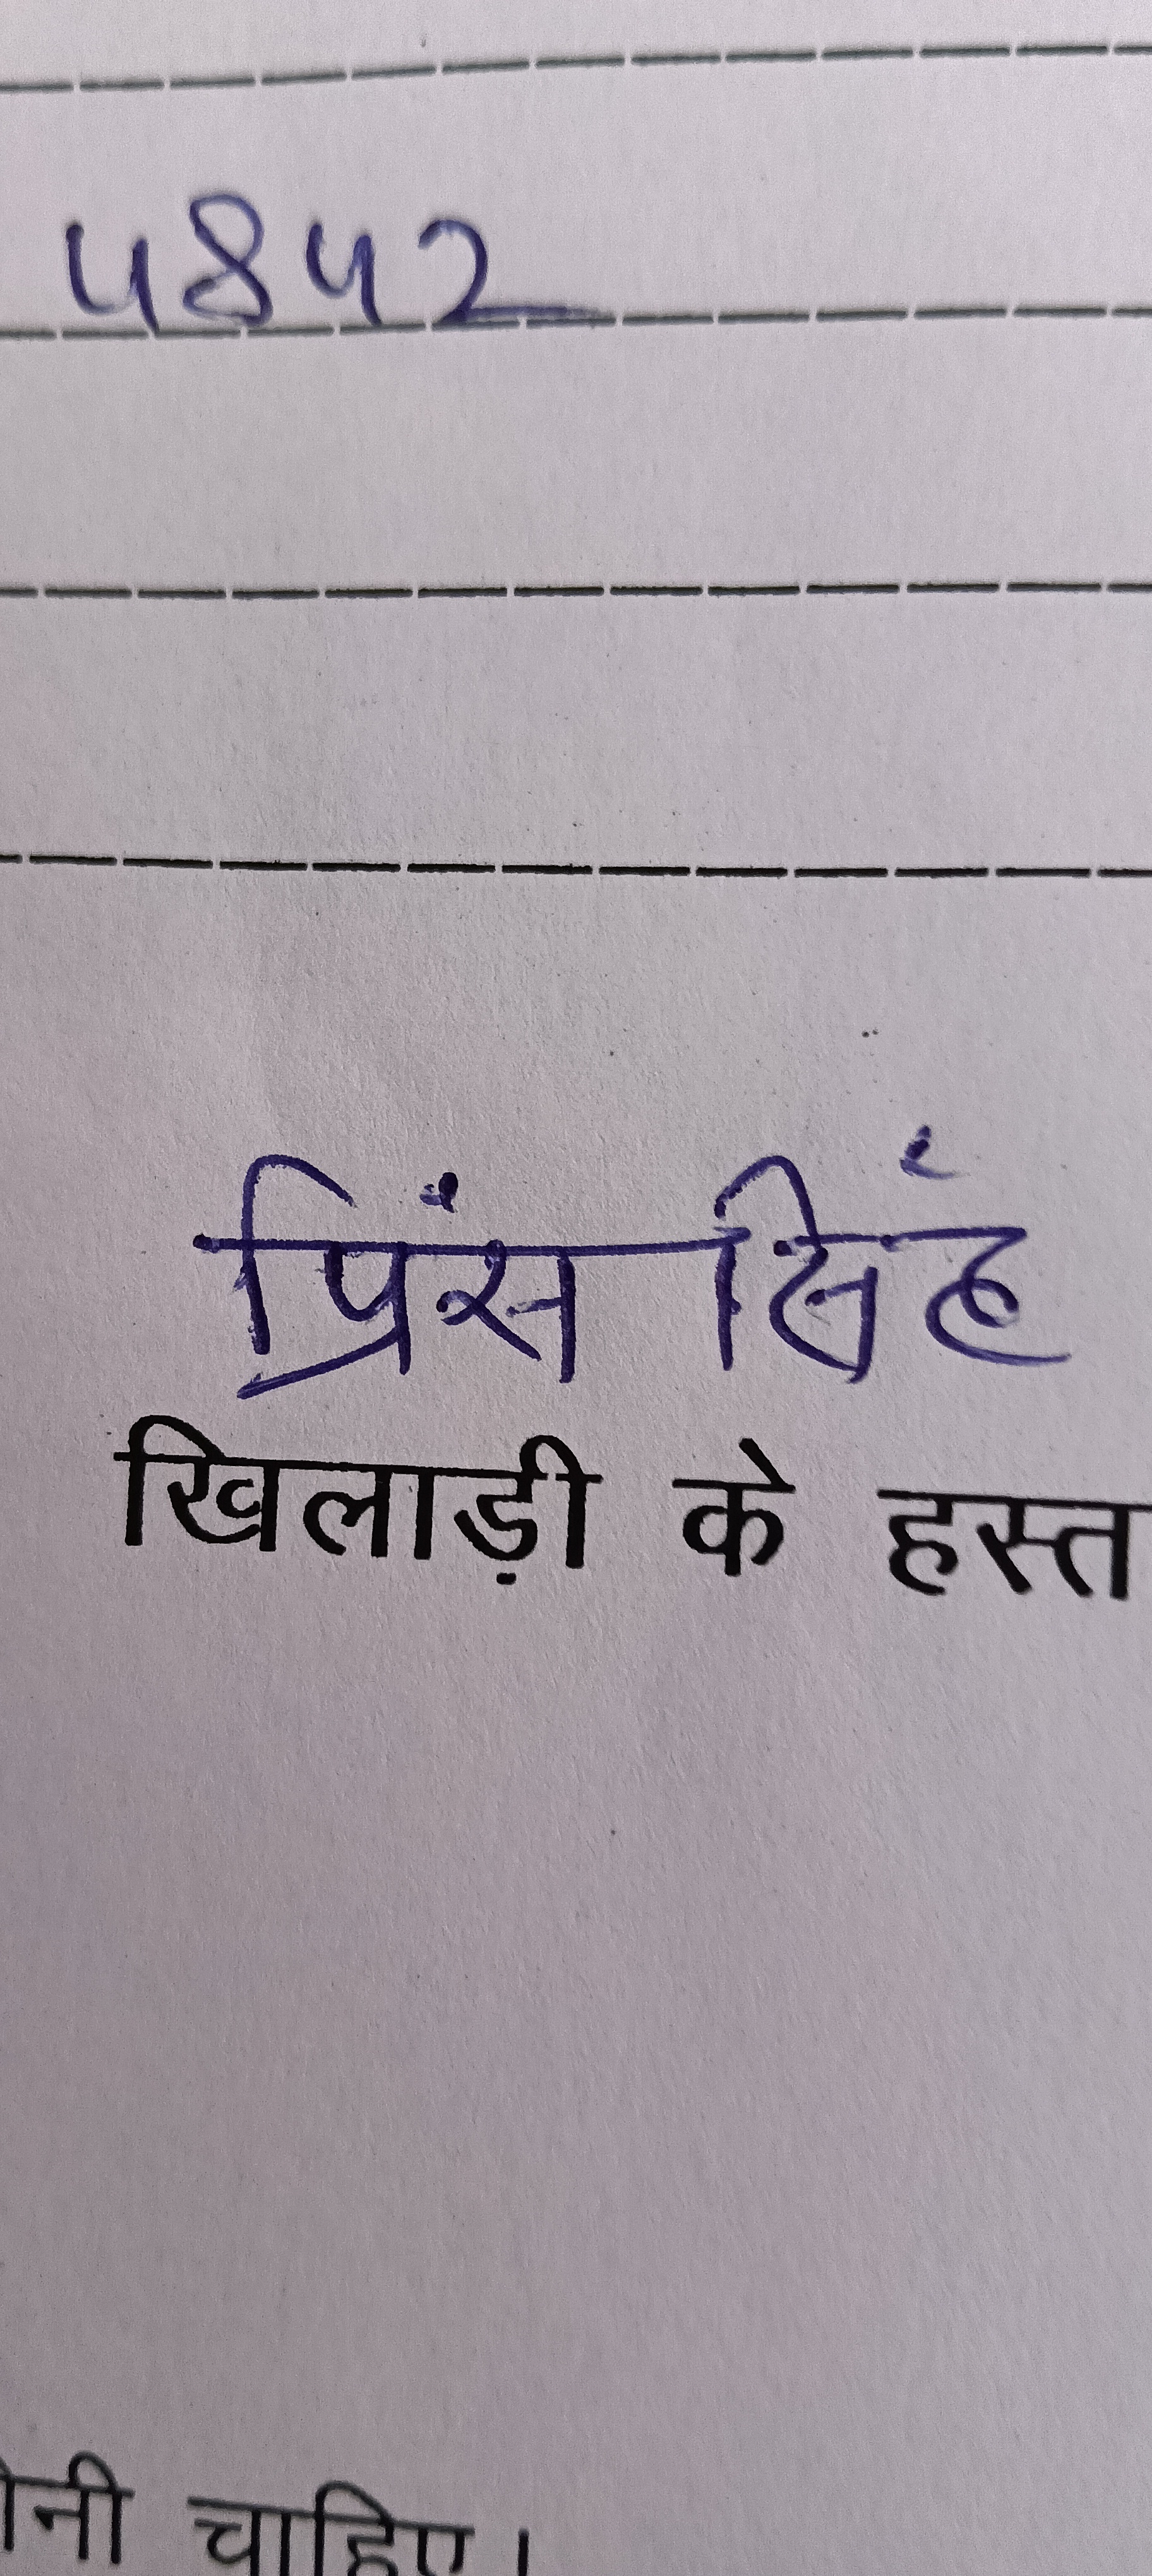 4842
प्रिंस सिंह
खिलाड़ी के हस्त
चाहिए।